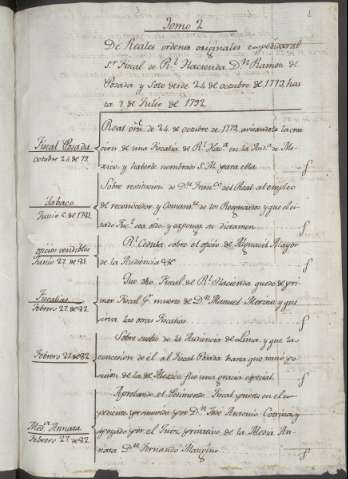 Tomo 2
1
De Reales ordenes originales expedidas al
Sr. Fiscal de Rl. Hacienda Dn. Ramon de
Posada y Soto desde 24 de octubre de 1779 has
ta 7 de Julio de 1792
Fiscal Posada
octubre 24 de 79
Real orn. de 24 de octubre de 1779 avisandole la crea
cion de una Fiscalia de Rl. Hacda. en la Auda. de Me
xico y haberle nombrado S.M. para ella
Tabaco
Junio 2 de 1781
Sobre restitucion de Dn. Franco. del Real al empleo
de reconocedor, y Comandte. de los Resguardos y que
sea oido y exponga su dictamen
oficios vendibles
Junio 27 de 81
Rl. Cedula sobre el oficio de Alguacil Mayor
de la Audiencia de
Fiscalias
Febrero 27 de 82
Que dho. Fiscal de Rl. Hacienda quede de pri
mer Fiscal pr. muerte de Dn. Manuel Merino y que
sirva las otras Fiscalias
Febrero 27 de 82
Sobre sueldo de la Audiencia de Lima, y que la
concesion de el al Fiscal Posada hasta que tomó pose
cion de la de Mexico fue una gracia especial
Meda. Annata
Febrero 27 de 82
Aprobando el Pedimento Fiscal puesto en el ex
pediente promovido por Dn. José Antonio
apoyado por el Juez privativo de la Media An
nata Dn. Fernando Mangino